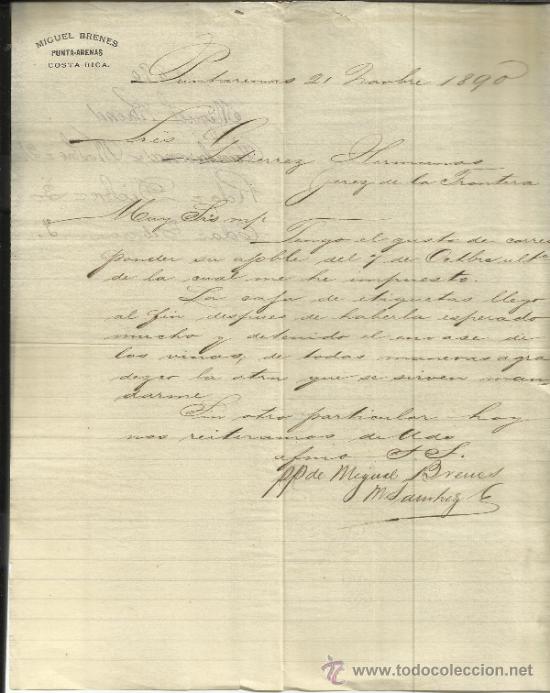 MIGUEL BRENES
PUNTA-ARENAS
COSTA-RICA.
Puntarenas 21 Novbre 1890
Sres
Gutierrez Hermanos
Jerez de la Frontera
Muy Sres mios
Tengo el gusto de corres
ponder su apble del 7 de Octbre ulto
de la cual me he impuesto.
La caja de etiquetas llego
al fin despues de haberla esperado
mucho y detenido el envase de
los vinos, de todas maneras agra
dezco la otra que se sirven man
darme
Sin otro particular hoy
nos reiteramos de Uds
afmo S. S.
pp de Miguel Brenes
M Sanchez C
www.todocoleccion.net